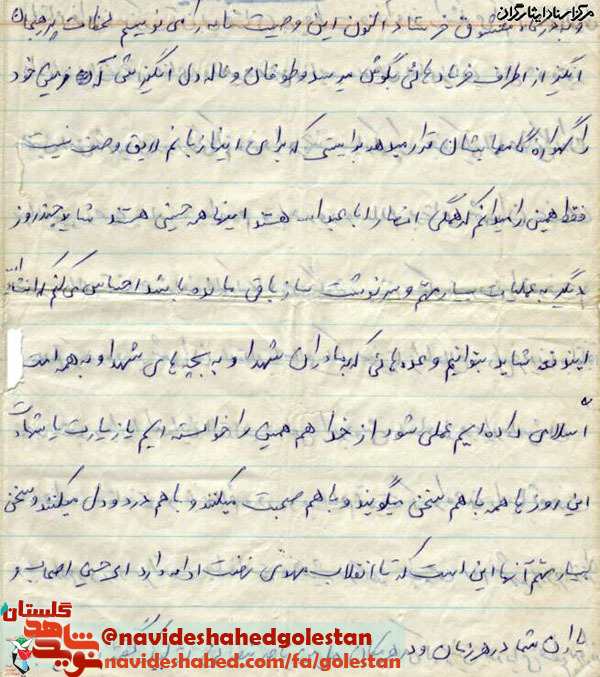 مرکز اسناد ایثارگران
فرستاد اکنون این وصیت نامه را می نویسم لحظات پر هیجان
انگیز از اطراف فریادهائی بگوش میرسد و طوفان و ناله دل انگیزشی که زمین خود
را گهواره گامهایشان قرار میدهد براستی که برای اینها زبانم لایق وصف نیست
فقط همین را میدانم که همگی انصار ابا عبداله هستند اینها همه حسینی هستند شاید چند روز
دیگر به عملیات بسیار مهم و سرنوشت ساز باقی مانده باشد احساس می کنم که انشاءاله
ایندفعه شاید بتوانیم وعده هائی که بمادران شهدا و به بچه های شهدا و به همه امت
اسلامی داده ایم عملی شود از خدا هم همین را خواسته ایم یا زیارت یا شهادت
این روزها همه با هم سخن میگویند و با هم صحبت میکنند و با هم درد و دل میکنند و سخن
بسیار مهم آنها این است که تا انقلاب مهدی نهضت ادامه دارد ای حسین اصحاب و
یاران شما در هر زمان و در هر مکان
نوید شاهد گلستان
@navideshahedgolestan
navideshahed.com/fa/golestan